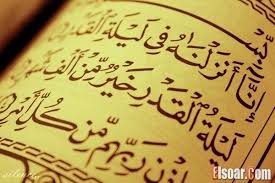 إِنَّا أَنزَلْنَٰهُ فِى لَيْلَةِ ٱلْقَدْرِ
لَيْلَةُ ٱلْقَدْرِ خَيْرٌ مِّنْ أَلْفِ شَهْرٍ
رَبِّهِم مِّن كُلِّ أَمْرٍ
Elsoar.Com